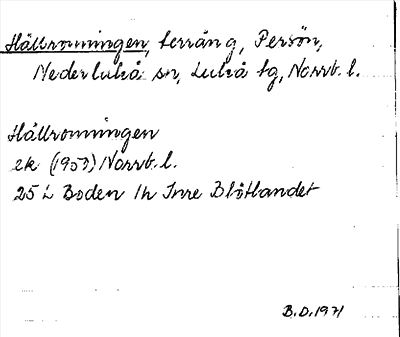 Hällronningen, terräng, Persön,
Nederluleå sn, Luleå tg, Norrb. l.
Hällronningen
ek (1953) Norrb. l.
25 L Boden 1h Inre Blötlandet
B.D. 1971